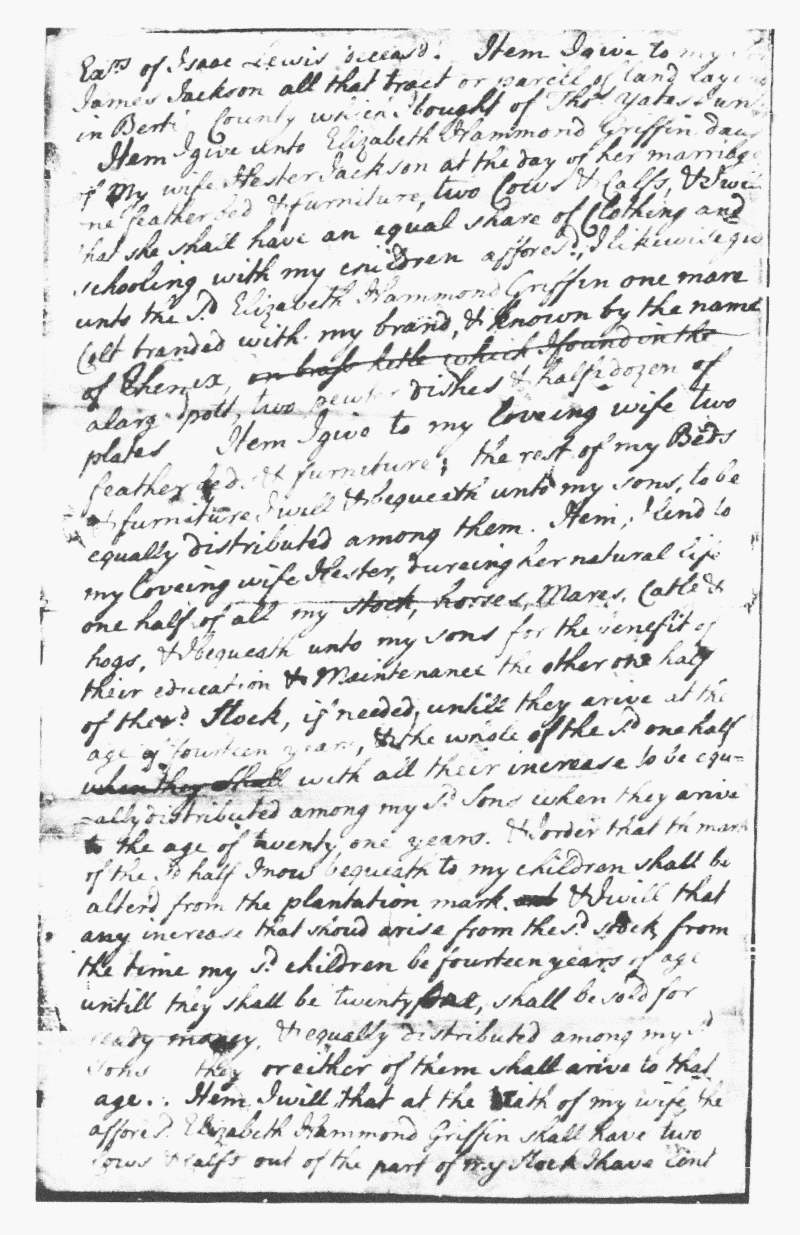 Exrs. of Isaac Lewis deceasd. Item I give to my
James Jackson all that tract or parcill of land laying
in Berti County which I bought of Thos. Yates &
Item I give unto Elizabeth Hammond Griffin
of my wife Hester Jackson at the day of her marriage
one feather bed & furniture, two Cows & Calfs, & I will
that she shall have an equal share of Clothing and
schooling with my children affores.d, I likewise give
unto the s.d Elizabeth Hammond Griffin one mare
Colt branded with my brand, & known by the name
of Phenix, on brass kitle which I found in the
a larg pott, two pewter dishes & half dozen of
plates Item I give to my loveing wife two
feather beds & furniture; the rest of my Beds
& furniture I will & bequeath unto my sons, to be
equally distributed among them. Item, I lend to
my loveing wife Hester, dureing her natural life
one half of all my stock, horses, Mares, Catle &
hogs, & I bequeath unto my sons for the benefit of
their education & Maintenance the other one half
of the s.d Stock, if needed, untill they arive at the
age of fourteen years, & the whole of the s.d one half
when they shall with all their increase to be equ=
-ally distributed among my s.d Sons when they arive
to the age of twenty one years. & I order that th mark
of the s.d half I now bequeath to my children shall be
alterd from the plantation mark. & I will that
any increase that shoud arise from the s.d stock from
the time my s.d children be fourteen years of age
untill they shall be twenty one, shall be sold for
ready money, & equally distributed among my s.d
Sons they or either of them shall arive to that
age.. Item I will that at the Death of my wife, the
affores.d Elizabeth Hammond Griffin shall have two
Cows & Calfs out of the part of my Stock I have lent